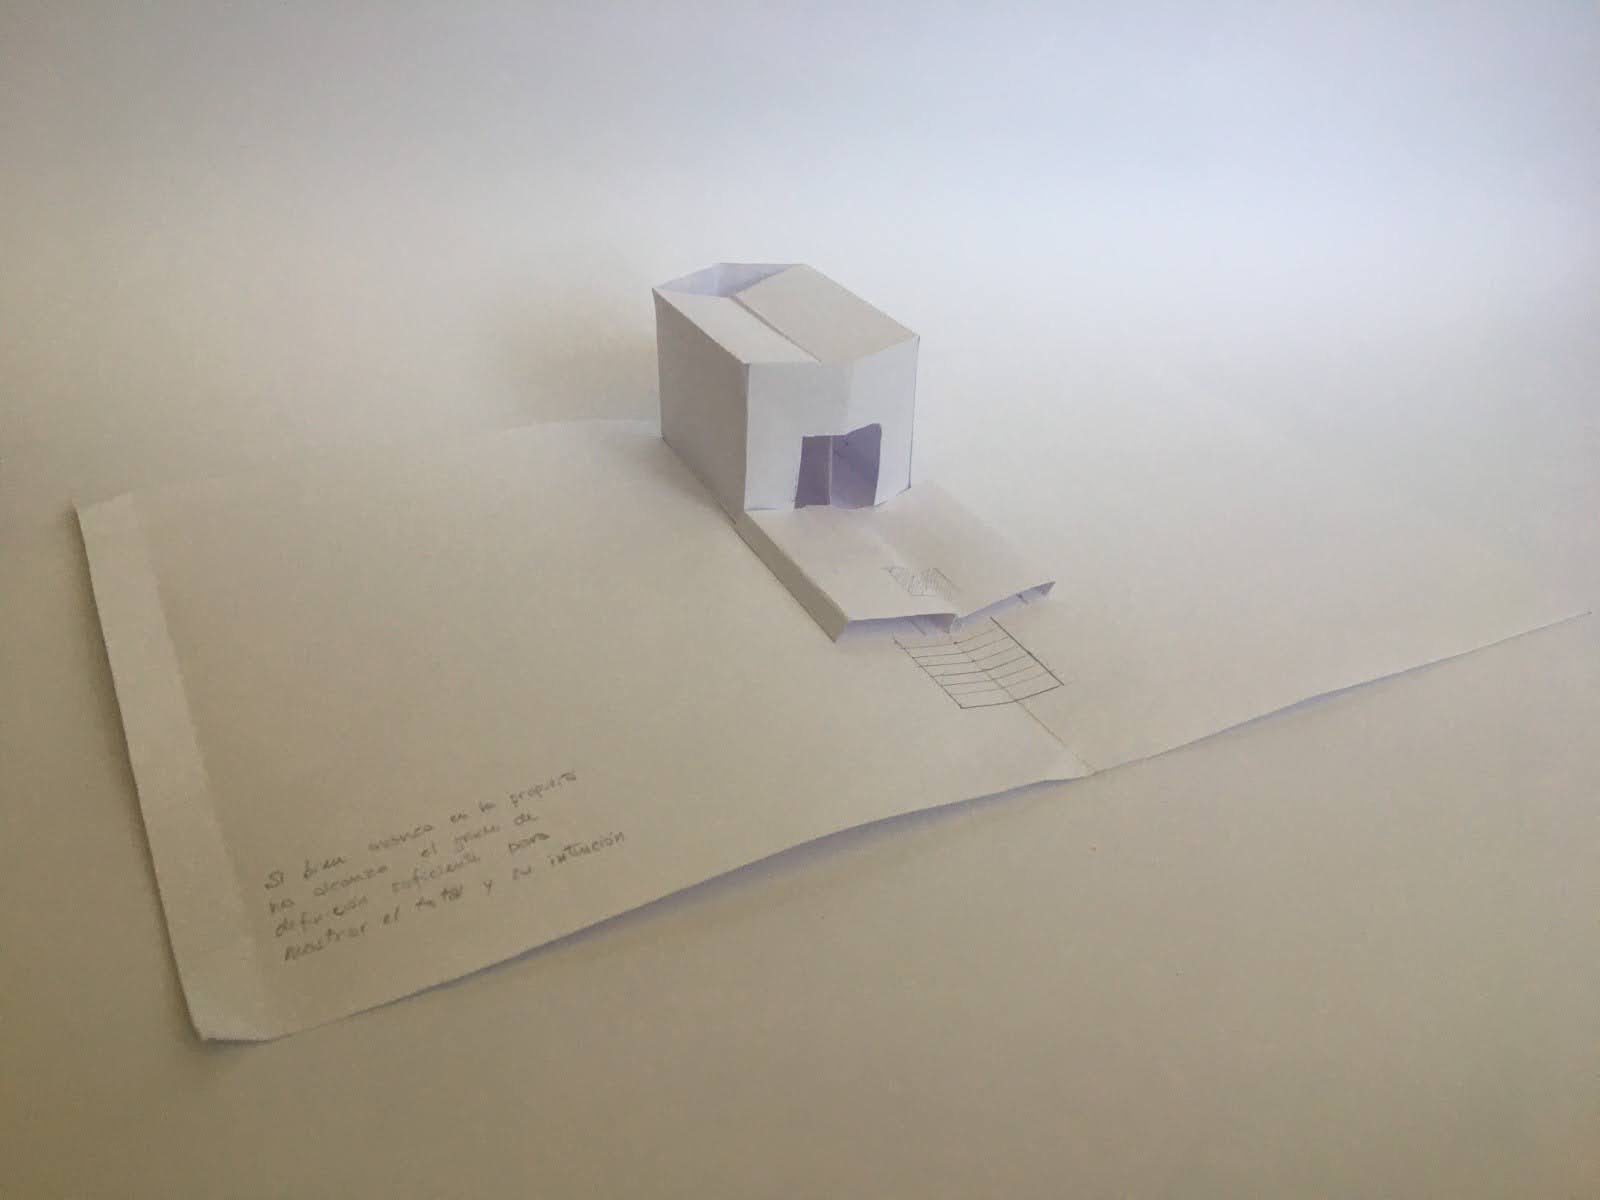 Si bien avanza en la propuesta
no alcanza el grado de
definición suficiente para
mostrar el total y su intuición